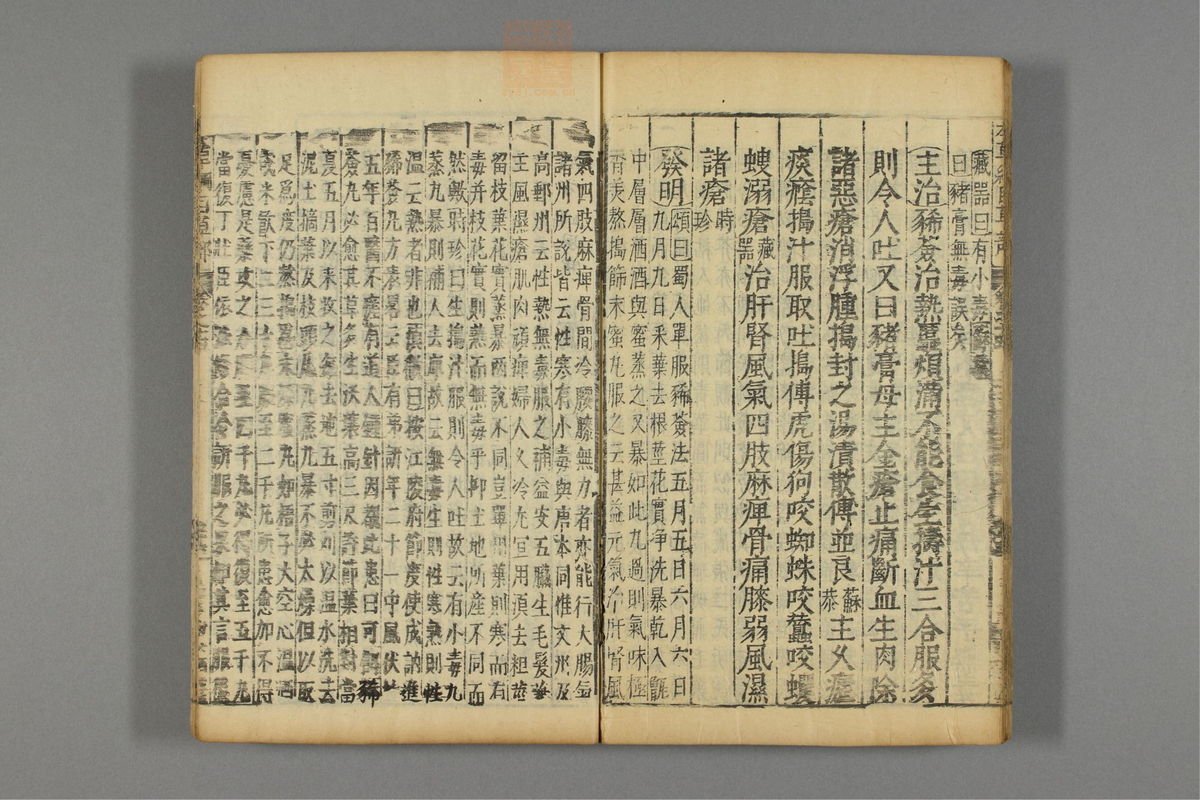 藏器曰有小毒蘇恭
曰豬膏無毒誤矣
主治豨薟治熱𧏾煩滿不能食生擣汁三合服多
則令人吐又曰豬膏母主金瘡止痛斷血生肉除
諸惡瘡消浮腫搗封之湯漬散傅並良蘇恭主久瘧
痰癊搗汁服取吐搗傅虎傷狗咬蜘蛛咬蠶咬蠼
螋溺瘡藏器治肝腎風氣四肢麻痺骨痛膝弱風濕
諸瘡時珍
發明頌曰蜀人單服豨薟法五月五日六月六日
九月九日釆葉去根莖花實净洗暴乾入甑
中層層洒酒與蜜蒸之又暴如此九過則氣味極
香美熬搗篩末蜜丸服之云甚益元氣治肝腎風
氣四肢麻痺骨間冷腰膝無力者亦能行大腸氣
諸州所說皆云性寒有小毒與唐本同惟文州及
高郵州云性熱無毒服之補益安五臟生毛髮兼
主風濕瘡肌肉頑痺婦人久冷尤宜用須去粗莖
留枝葉花實蒸暴兩說不同豈單用葉則寒而有
毒并枝花實則熱而無毒乎抑土地所産不同而
然歟時珍曰生搗汁服則令人吐故云有小毒九
蒸九暴則補人去痺故云無毒生則性寒熟則性
温云熱者非也頌曰按江陵府節度使成訥進豨
薟丸方表畧云臣有弟訮年二十一中風伏枕
五年百醫不瘥有道人鍾針因覩此患曰可餌豨
薟丸必愈其草多生沃壤高三尺許節葉相對當
夏五月以來收之每去地五寸剪刈以温水洗去
泥土摘葉及枝頭凡九蒸九暴不必太燥但以取
足爲度仍熬搗爲末煉蜜丸如梧子大空心温酒
或米飲下二三十丸服至二千丸所患愈加不得
憂慮是藥攻之力服至四千丸必得復至五千丸
當復丁壯臣依法修合令訮服之果如其言服後